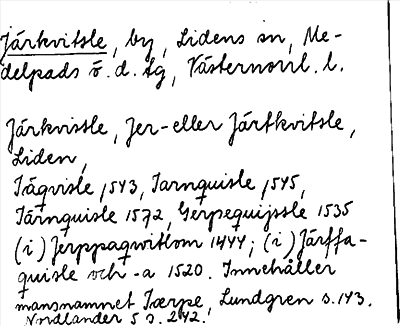 Järkvitsle, by, Lidens sn, Me-
delpads ö. d. tg, Västernorrl. l.
Järkvistle, Jer- eller Järtkvitsle,
Liden,
Tägvisle, 1543, Iarnquisle, 1545,
Tärnquisle 1572, Gerpequijssle 1535
(i) Jerppaqwitlom 1444; (i) Järffa-
quisle och -a 1520. Innehåller
mansnamnet Iærpe, Lundgren s. 143.
Nordlander 5 s. 242.